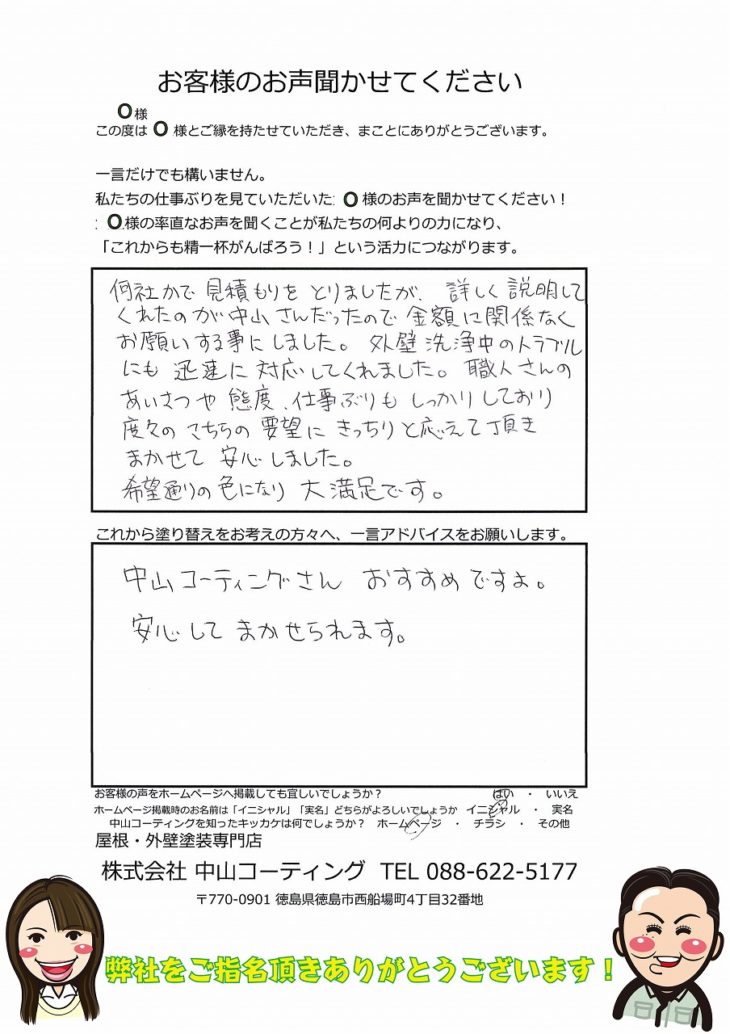 お客様のお声聞かせてください
O様
この度は O 様とご縁を持たせていただき、まことにありがとうございます。
一言だけでも構いません。
私たちの仕事ぶりを見ていただいた: O 様のお声を聞かせてください！
: O.様の率直なお声を聞くことが私たちの何よりの力になり、
「これからも精一杯がんばろう！」という活力につながります。
何社かで 見積もりを とりましたが、 詳しく 説明して
くれたのが中山さんだったので 金額に関係なく
お願いする事にしました。 外壁 洗浄中のトラブル
にも 迅速に 対応してくれました。 職人さんの
あいさつや 態度、仕事ぶりも しっかりしており
度々の こちらの 要望に きっちりと応えて頂き
まかせて 安心しました。
希望通りの色になり 大満足です。
これから塗り替えをお考えの方々へ、一言アドバイスをお願いします。
中山コーティングさん おすすめですよ。
安心して まかせられます。
お客様の声をホームページへ掲載しても宜しいでしょうか？ はい ・ いいえ
ホームページ掲載時のお名前は「イニシャル」「実名」どちらがよろしいでしょうか イニシャル ・ 実名
中山コーティングを知ったキッカケは何でしょうか？ ホームページ ・ チラシ ・ その他
屋根・外壁塗装専門店
株式会社 中山コーティング TEL 088-622-5177
〒770-0901 徳島県徳島市西船場町4丁目32番地
弊社をご指名頂きありがとうございます！